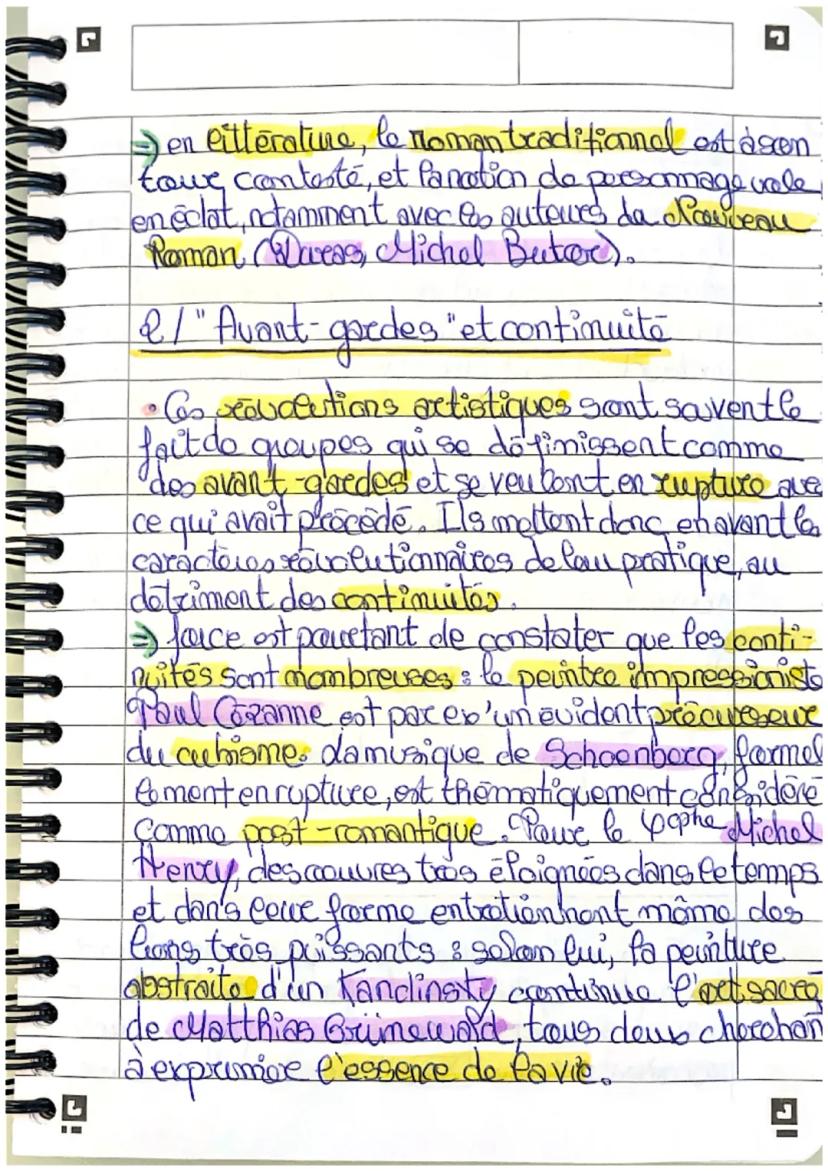 ⇒ en littérature, le roman traditionnel est à son
tour contesté, et la notion de personnage vole
en éclat, notamment avec les auteurs du Nouveau
Roman (Duras, Michel Butor).
2/ "Avant-gardes" et continuité
• Les révolutions artistiques sont souvent le
fait de groupes qui se définissent comme
des avant-gardes et se veulent en rupture avec
ce qui avait précédé. Ils mettent donc en avant les
caractères révolutionnaires de leur pratique, au
détriment des continuités.
⇒ force est pourtant de constater que les conti-
nuités sont nombreuses : le peintre impressionniste
Paul Cézanne est par ex' un évident précurseur
du cubisme. La musique de Schoenberg, formel
lement en rupture, est thématiquement considéré
comme post-romantique. Pour le φophe Michel
Henry, des œuvres très éloignées dans le temps
et dans leur forme entretiennent même des
liens très puissants : selon lui, la peinture
abstraite d'un Kandinsky continue l'art sacré
de Matthias Grünewald, tous deux cherchant
à exprimer l'essence de la vie.